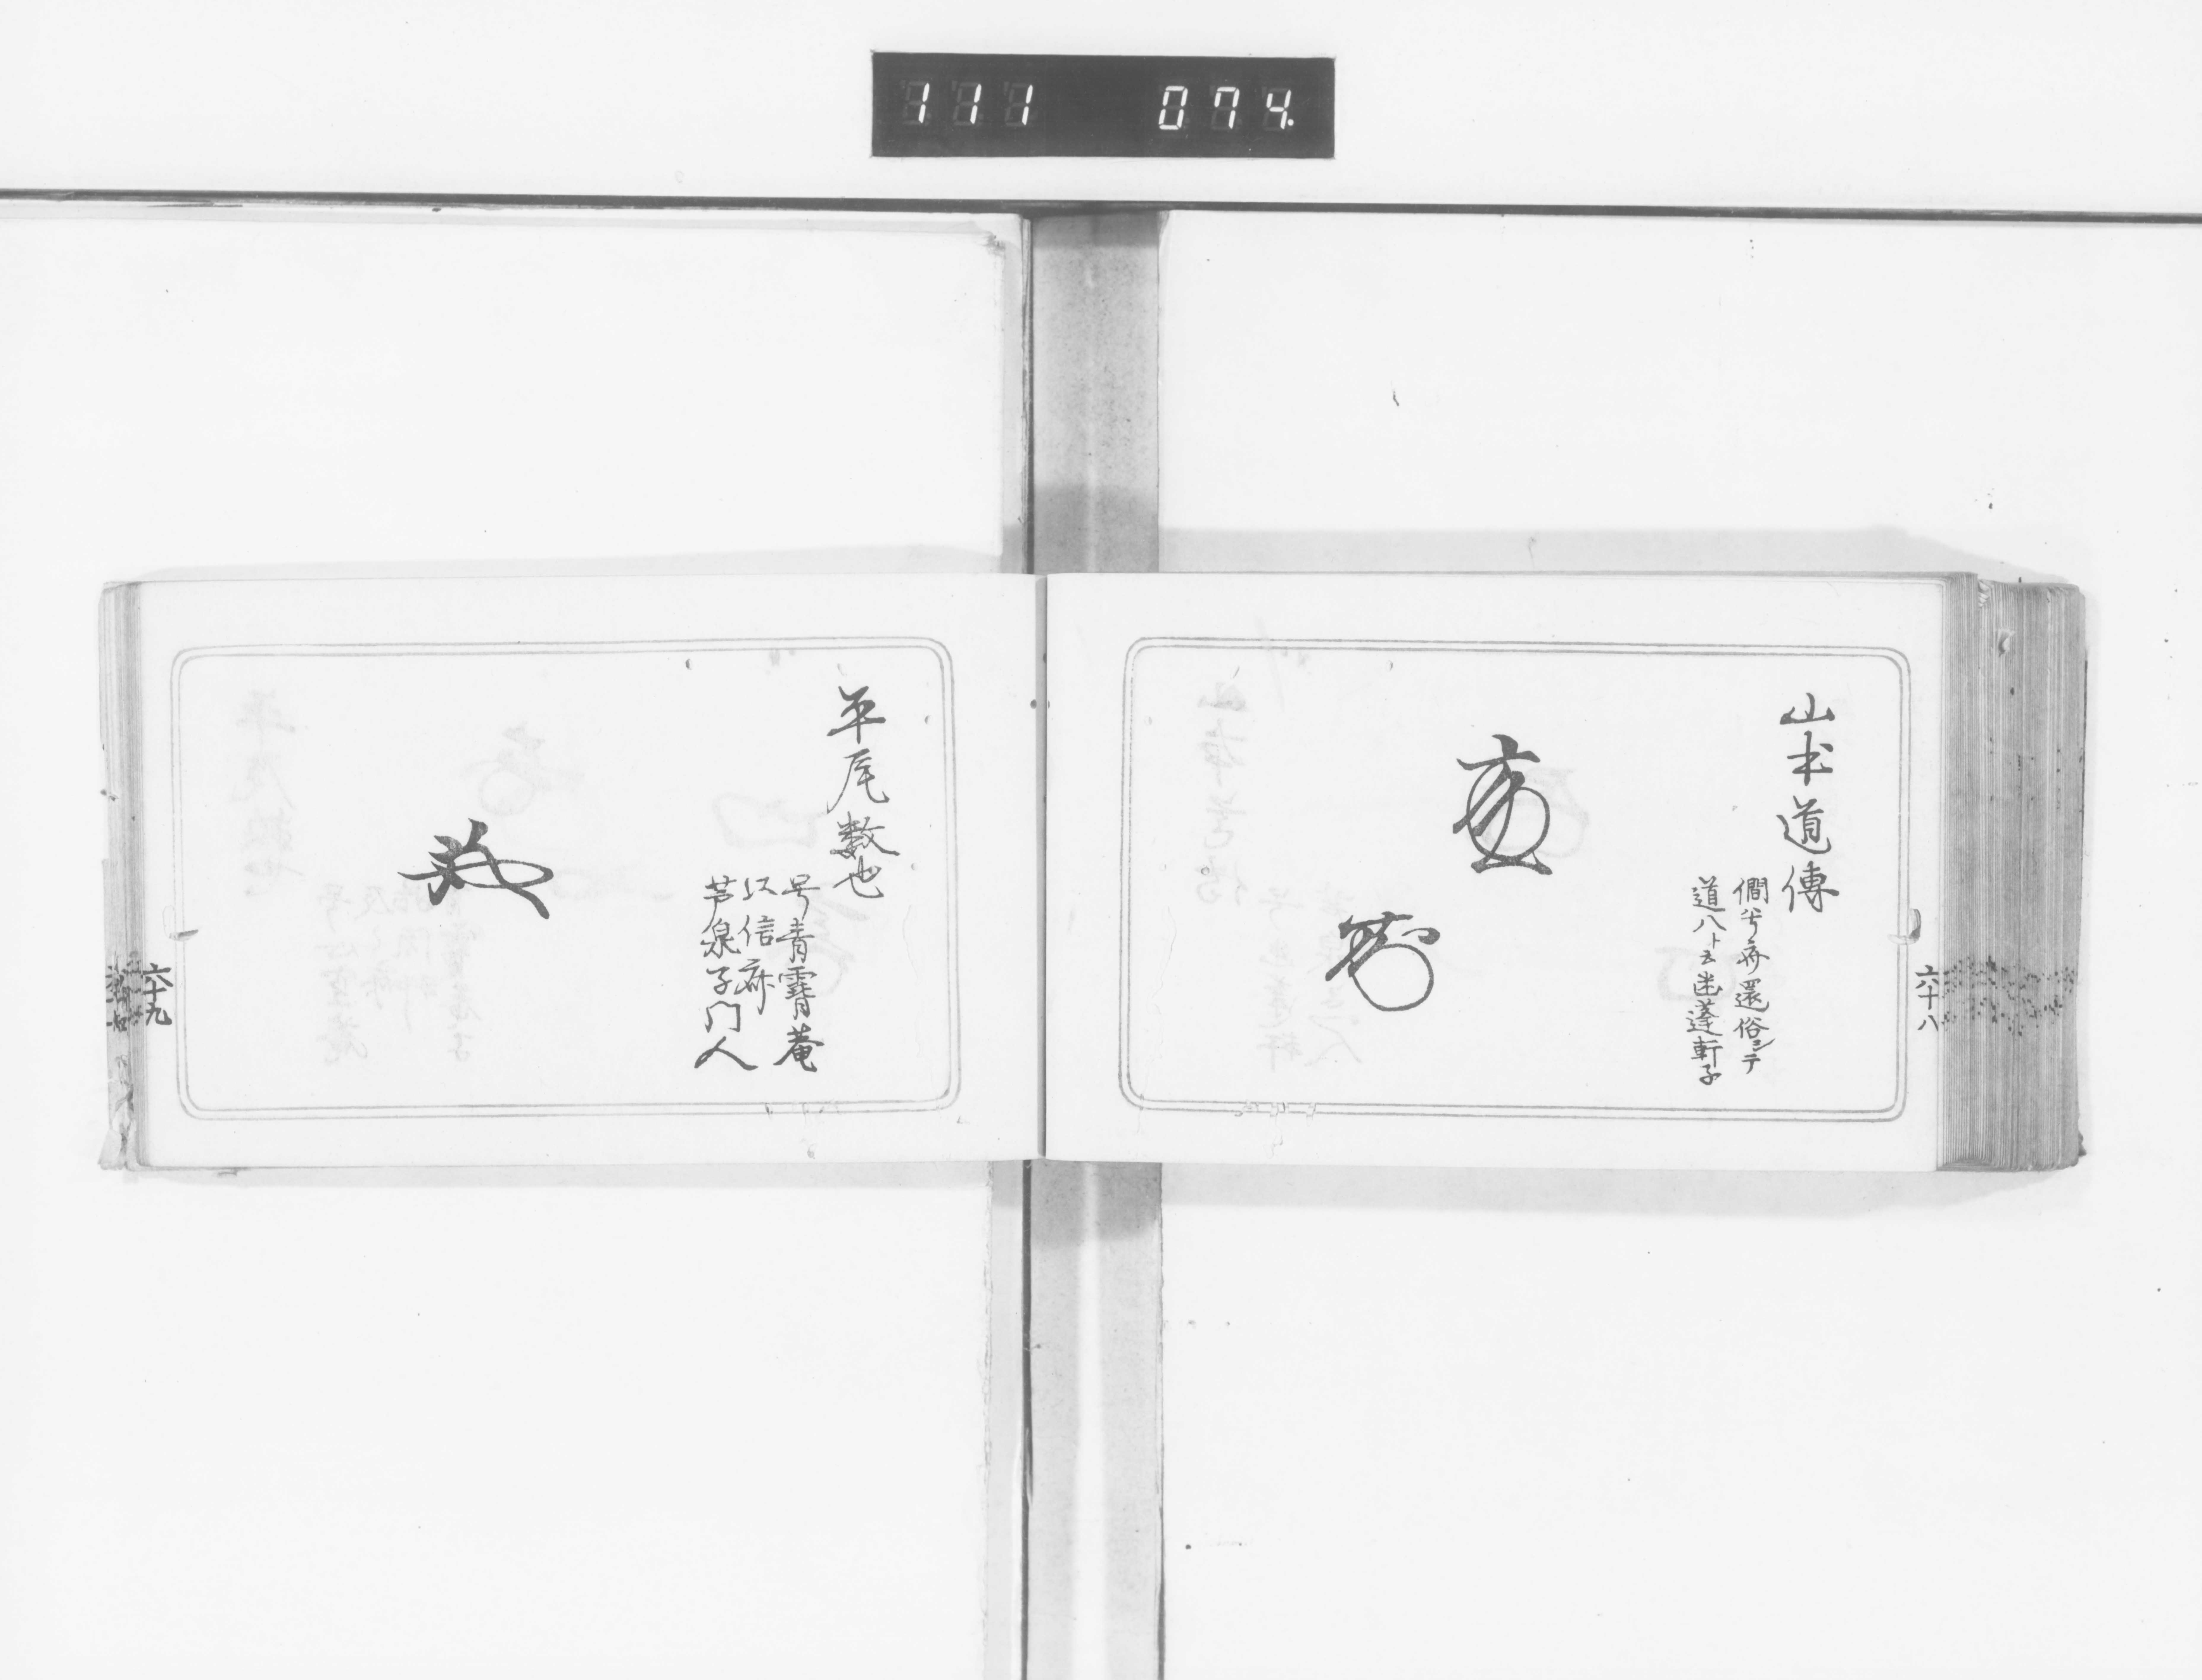 111 074.
六十八
山本道傳
號斎還俗シテ
道八ト云迷蓬軒子
平尾数也
号青霄菴
以信斎
芦泉子門人
六十九